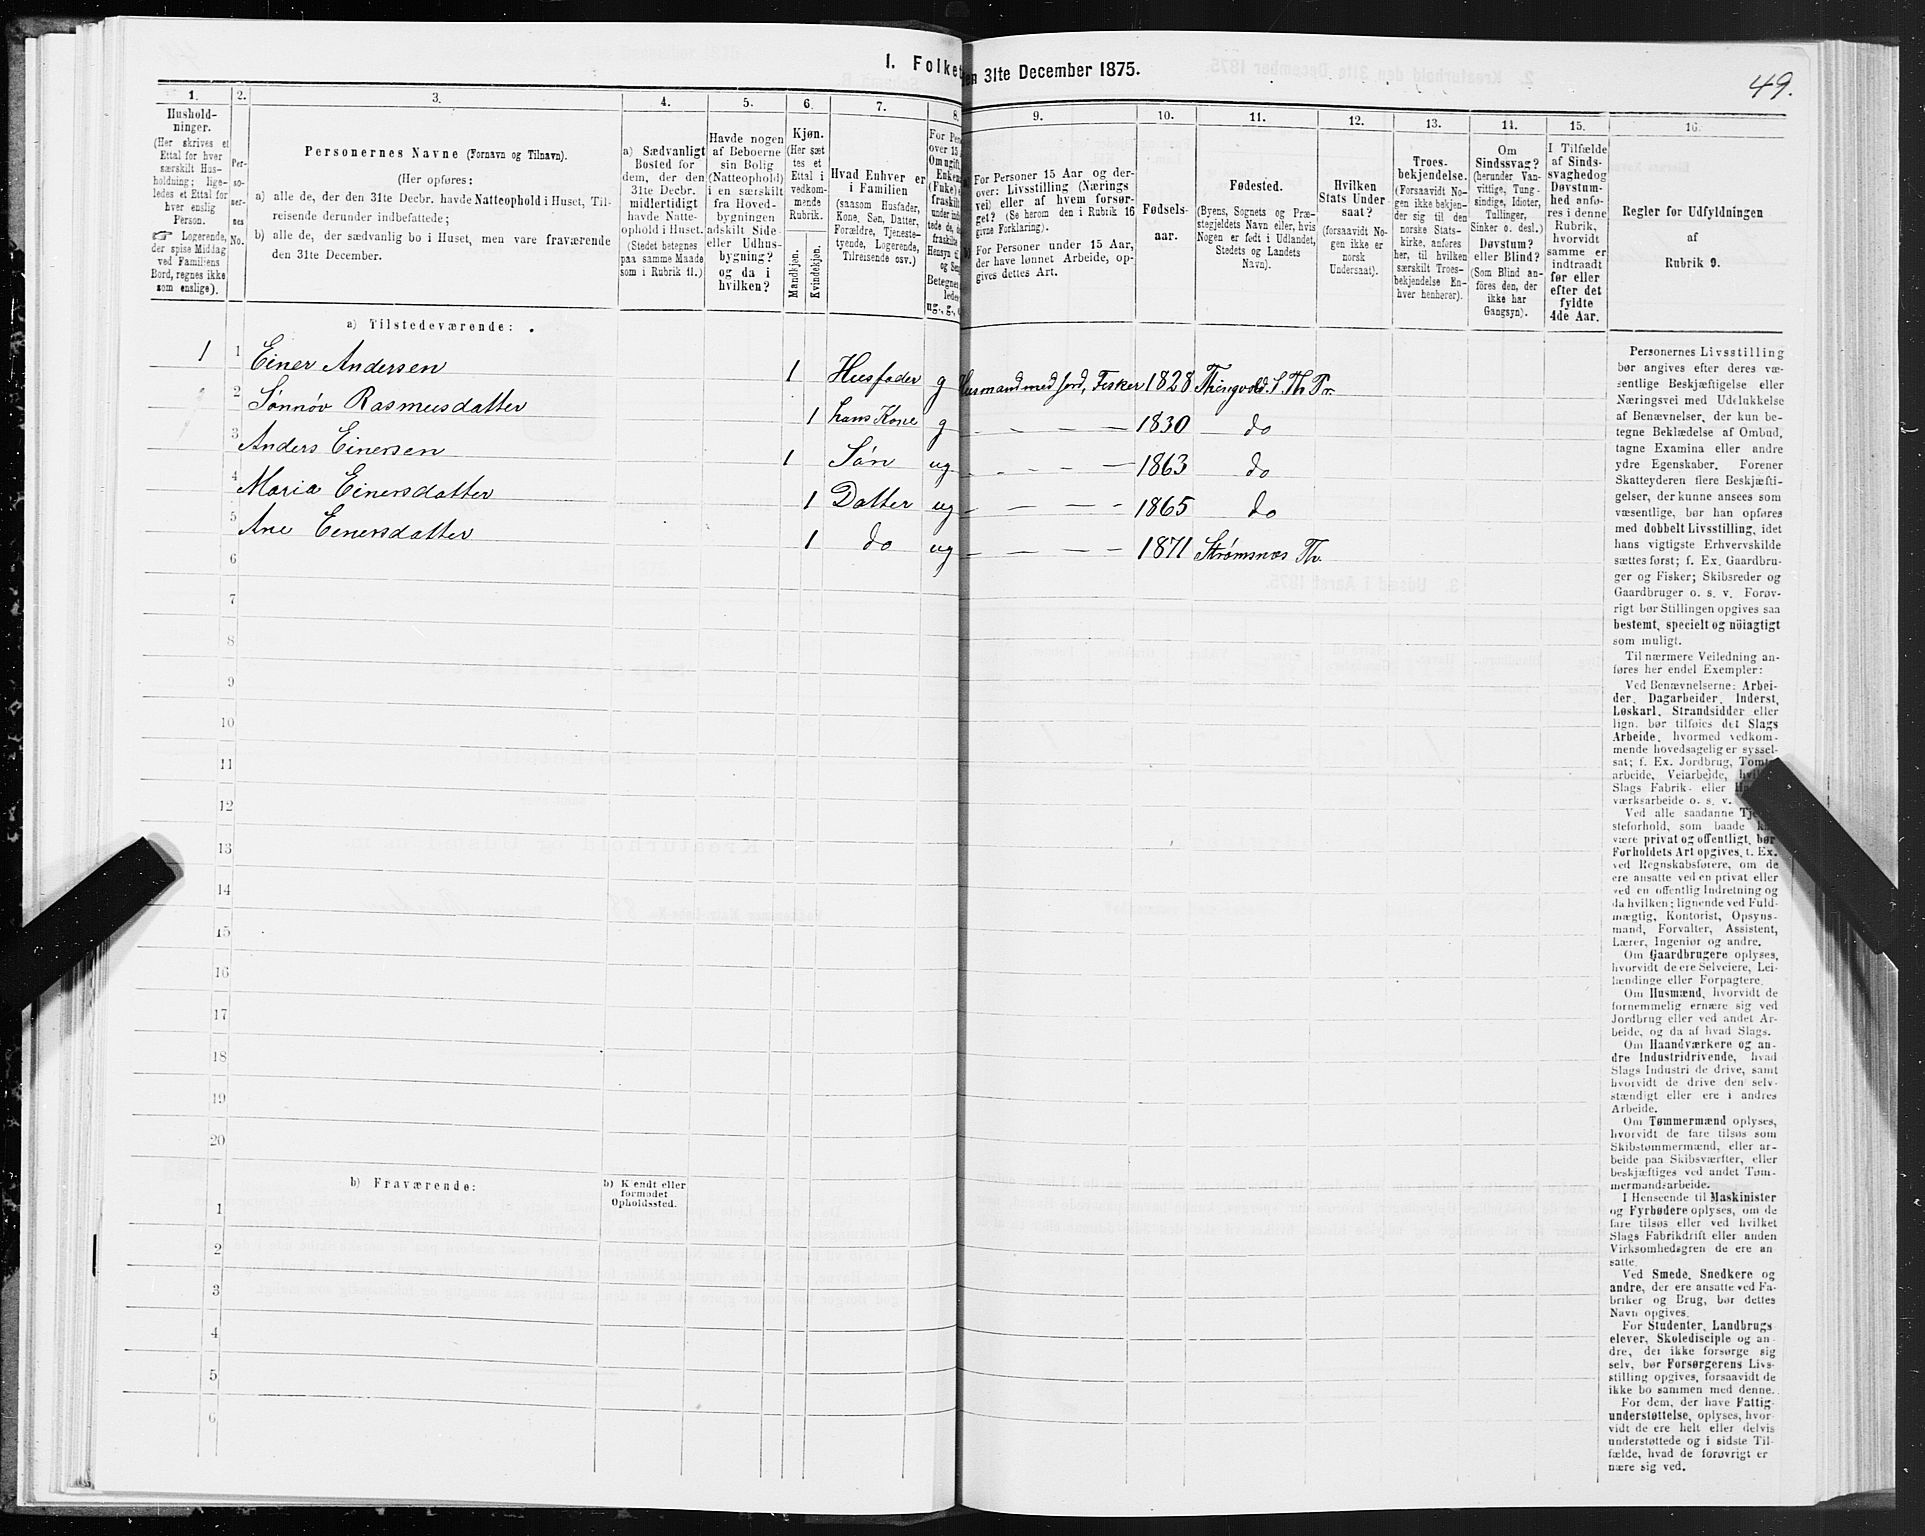 49.
I. Folket en 31te December 1875.
1. 2. 3. 4. 5. 6. 7. 8. 9. 10. 11. 12. 13. 14. 15. 16.
Hushold-
ninger.
(Her skrives et
Ettal for hver
særskilt Hus-
holdning; lige-
ledes et Ettal for
hver enslig
Person.
☞ Logerende,
der spise Middag
ved Familiens
Bord, regnes ikke
som enslige).
Per-
so-
ner-
nes
No.
Personernes Navne (Fornavn og Tilnavn).
(Her opføres:
a) alle de, der den 31te Decbr. havde Natteophold i Huset, Til-
reisende derunder indbefattede;
b) alle de, der sædvanlig bo i Huset, men vare fraværende
den 31te December.
a) Sædvanligt
Bosted for
dem, der den
31te Decbr.
midlertidigt
havde Natte-
ophold i Huset.
(Stedet betegnes
paa samme Maade
som i Rubrik 11.)
Havde nogen
af Beboerne
sin Bolig
(Natteophold)
i en særskilt
fra Hoved-
bygningen
adskilt Side-
eller Udhus-
bygning?
og da i
hvilken?
Kjøn.
(Her sæt
tes et
Ettal i
vedkom-
mende
Rubrik.
Mandkjøn.
Kvindekjøn.
Hvad Enhver er
i Familien
(saasom Husfader,
Kone, Søn, Datter,
Forældre, Tjeneste-
tyende, Logerende,
Tilreisende osv.)
For Pers
over 15
Om ugift,
Enkem
(Fuke)
fraskilt
Betegnes
ledes
ug., g.,
a) For Personer 15 Aar og der-
over: Livsstilling (Nærings
vei) eller af hvem forsør-
get? (Se herom den i Rubrik 16
givne Forklaring).
b) For Personer under 15 Aar,
der have lønnet Arbeide, op-
gives dettes Art.
Fødsels-
aar.
Fødested.
(Byens, Sognets og Præ-
stegjeldets Navn eller, hvis
Nogen er født i Udlandet,
Stedets og Landets
Navn).
Hvilken
Stats Under
saat?
(forsaavidt No-
gen ikke er
norsk
Undersaat).
Troes-
bekjendelse.
(Forsaavidt No-
gen ikke bekjen-
der sig til den
norske Stats-
kirke, anføres
her, til hvilken
særskilt Troes-
bekjendelse En-
hver henhører).
Om
Sindssvag?
(herunder Van-
vittige, Tung-
sindige, Idioter,
Tullinger,
Sinker o. desl.)
Døvstum?
eller Blind?
(Som Blind an-
føres den, der
ikke har
Gangsyn).
I Tilfælde
af Sinds-
svaghed og
Døvstum-
hed anfø-
res i denne
Rubrik,
hvorvidt
samme er
indtraadt
før eller
efter det
fyldte
4de Aar.
Regler for Udfyldningen
af
Rubrik 9.
a) Tilstedeværende:
1 1 Einer Andersen 1 Husfader g Husmand med jord, Fisker 1828 Thingvold S. Th Pr.
2 Sønnøv Rasmusdatter 1 hans Kone g - - - - 1830 do
3 Anders Einersen 1 Søn ug - - - - 1863 do
4 Maria Einersdatter 1 Datter ug - - - - 1865 do
5 Ane Einersdatter 1 do ug - - - - 1871 Strømsnæs Th.
6
7
8
9
10
11
12
13
14
15
16
17
18
19
20
b) Fraværende:
b) Kjendt eller
formodet
Opholdssted.
1
2
3
4
5
6
Personernes Livsstilling
bør angives efter deres væ-
sentlige Beskjæftigelse eller
Næringsvei med Udelukkelse
af Benævnelser, der kun be-
tegne Beklædelse af Ombud,
tagne Examina eller andre
ydre Egenskaber. Forener
Skatteyderen flere Beskjæfti-
gelser, der kunne ansees som
væsentlige, bør han opføres
med dobbelt Livsstilling, idet
hans vigtigste Erhvervskilde
sættes først; f. Ex. Gaardbru-
ger og Fisker; Skibsreder og
Gaardbruger o. s. v. Forøv-
rigt bør Stillingen opgives saa
bestemt, specielt og nöiagtigt
som muligt.
Til nærmere Veiledning an-
føres her endel Exempler:
Ved Benævnelserne: Arbei-
der, Dagarbeider, Inderst,
Løskarl, Strandsidder eller
lign. bør tilføies det Slags
Arbeide, hvormed vedkom-
mende hovedsagelig er syssel-
sat; f. Ex. Jordbrug, Tomte-
arbeide, Veiarbeide, hvil
Slags Fabrik- eller
værksarbeide o. s. v.
Ved alle saadanne Tje
steforhold, som baade
være privat og offentligt, bør
Forholdets Art opgives, f. Ex.
ved Regnskabsførere, om de
ere ansatte ved en privat eller
ved en offentlig Indretning og
da hvilken; lignende ved Fuld-
mægtig, Kontorist, Opsyns-
mand, Forvalter, Assistent,
Lærer, Ingeniør og andre.
Om Gaardbrugere oplyses,
hvorvidt de ere Selveiere, Lei-
lændinge eller Forpagtere.
Om Husmænd, hvorvidt de
fornemmelig ernære sig ved
Jordbrug eller ved andet Ar-
beide, og da af hvad Slags.
Om Haandværkere og an-
dre Industridrivende, hvad
Slags Industri de drive, samt
hvorvidt de drive den selv-
stændigt eller ere i andres
Arbeide.
Om Tømmermænd oplyses,
hvorvidt de fare tilsøs som
Skibstømmermænd, eller ar-
beide paa Skibsværfter, eller
beskjæftiges ved andet Tøm-
mermandsarbeide.
I Henseende til Maskinister
og Fyrbødere oplyses, om de
fare tilsøs eller ved hvilket
Slags Fabrikdrift eller anden
Virksomhedsgren de ere an-
satte.
Ved Smede, Snedkere og
andre, der ere ansatte ved Fa-
briker og Brug, bør dettes
Navn opgives.
For Studenter, Landbrugs
elever, Skoledisciple og an-
dre, der ikke forsørge sig
selv, bør Forsørgerens Livs-
stilling opgives, forsaavidt de
ikke bo sammen med denne.
For dem, der have Fattig-
understøttelse, oplyses, hvor-
vidt de ere helt eller delvis
understøttede og i sidste Til-
fælde, hvad de forøvrigt er
nære sig ved.